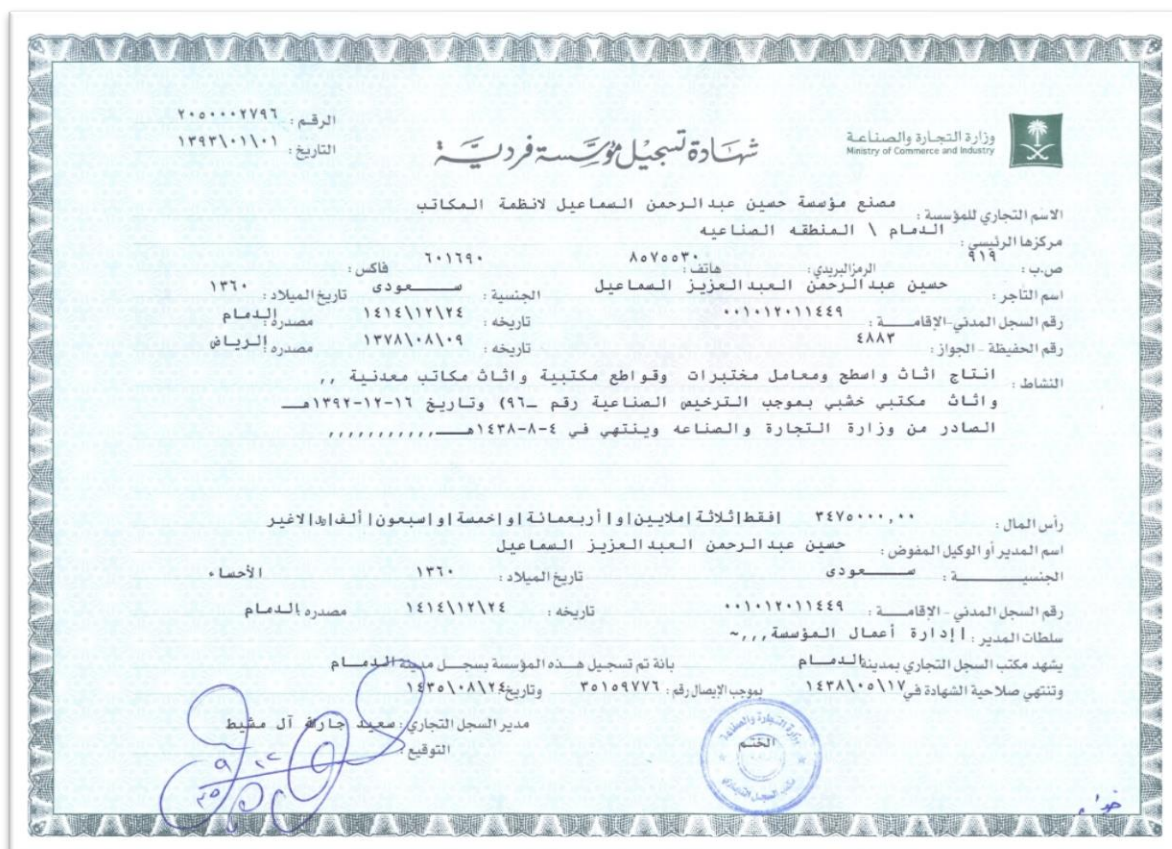 الرقم : ٢٠٥٠٠٠٢٧٩٦
التاريخ : ١٣٩٣\٠١\٠١
وزارة التجارة والصناعة
Ministry of Commerce and Industry
شهادة تسجيل مؤسسة فردية
الاسم التجاري للمؤسسة : مصنع مؤسسة حسين عبدالرحمن السماعيل لانظمة المكاتب
مركزها الرئيسي : الدمام \ المنطقه الصناعيه
ص.ب : ٩١٩ الرمز البريدي : هاتف : ٨٥٧٥٥٣٠ فاكس : ٦٠١٦٩٠
اسم التاجر : حسين عبدالرحمن العبدالعزيز السماعيل الجنسية : سعودى تاريخ الميلاد : ١٣٦٠
رقم السجل المدني-الإقامة : ٠٠١٠١٢٠١١٤٤٩ تاريخه : ١٤١٤\١٢\٢٤ مصدره الدمام
رقم الحفيظة - الجواز : ٤٨٨٣ تاريخه : ١٣٧٨\٠٨\٠٩ مصدره الرياض
النشاط : انتاج اثاث واسطح ومعامل مختبرات وقواطع مكتبية واثاث مكاتب معدنية ,,
واثاث مكتبي خشبي بموجب الترخيص الصناعية رقم ـ٩٦) وتاريخ ١٦-١٢-١٣٩٢هـ
الصادر من وزارة التجارة والصناعه وينتهي في ٤-٨-١٤٣٨هـ,,,,,,,,,,,,
رأس المال : ٣٤٧٥٠٠٠,٠٠ |فقط|ثلاثة|ملايين|و|أربعمائة|و|خمسة|و|سبعون|ألف|﷼|لاغير
اسم المدير أو الوكيل المفوض : حسين عبدالرحمن العبدالعزيز السماعيل
الجنسيـة : سعودى تاريخ الميلاد : ١٣٦٠ الأحساء
رقم السجل المدني - الإقامة : ٠٠١٠١٢٠١١٤٤٩ تاريخه : ١٤١٤\١٢\٢٤ مصدره الدمام
سلطات المدير : |إدارة أعمال المؤسسة,,,~
يشهد مكتب السجل التجاري بمدينة الدمام بانة تم تسجيل هذه المؤسسة بسجل مدينة الدمام
وتنتهي صلاحية الشهادة في ١٤٣٨\٠٥\١٧ بموجب الإيصال رقم : ٣٥١٥٩٧٧٦ وتاريخ ١٤٣٥\٠٨\٢٤
مدير السجل التجاري : سعيد جارالله آل مشيط
التوقيع :
الختم
وزارة التجارة والصناعة